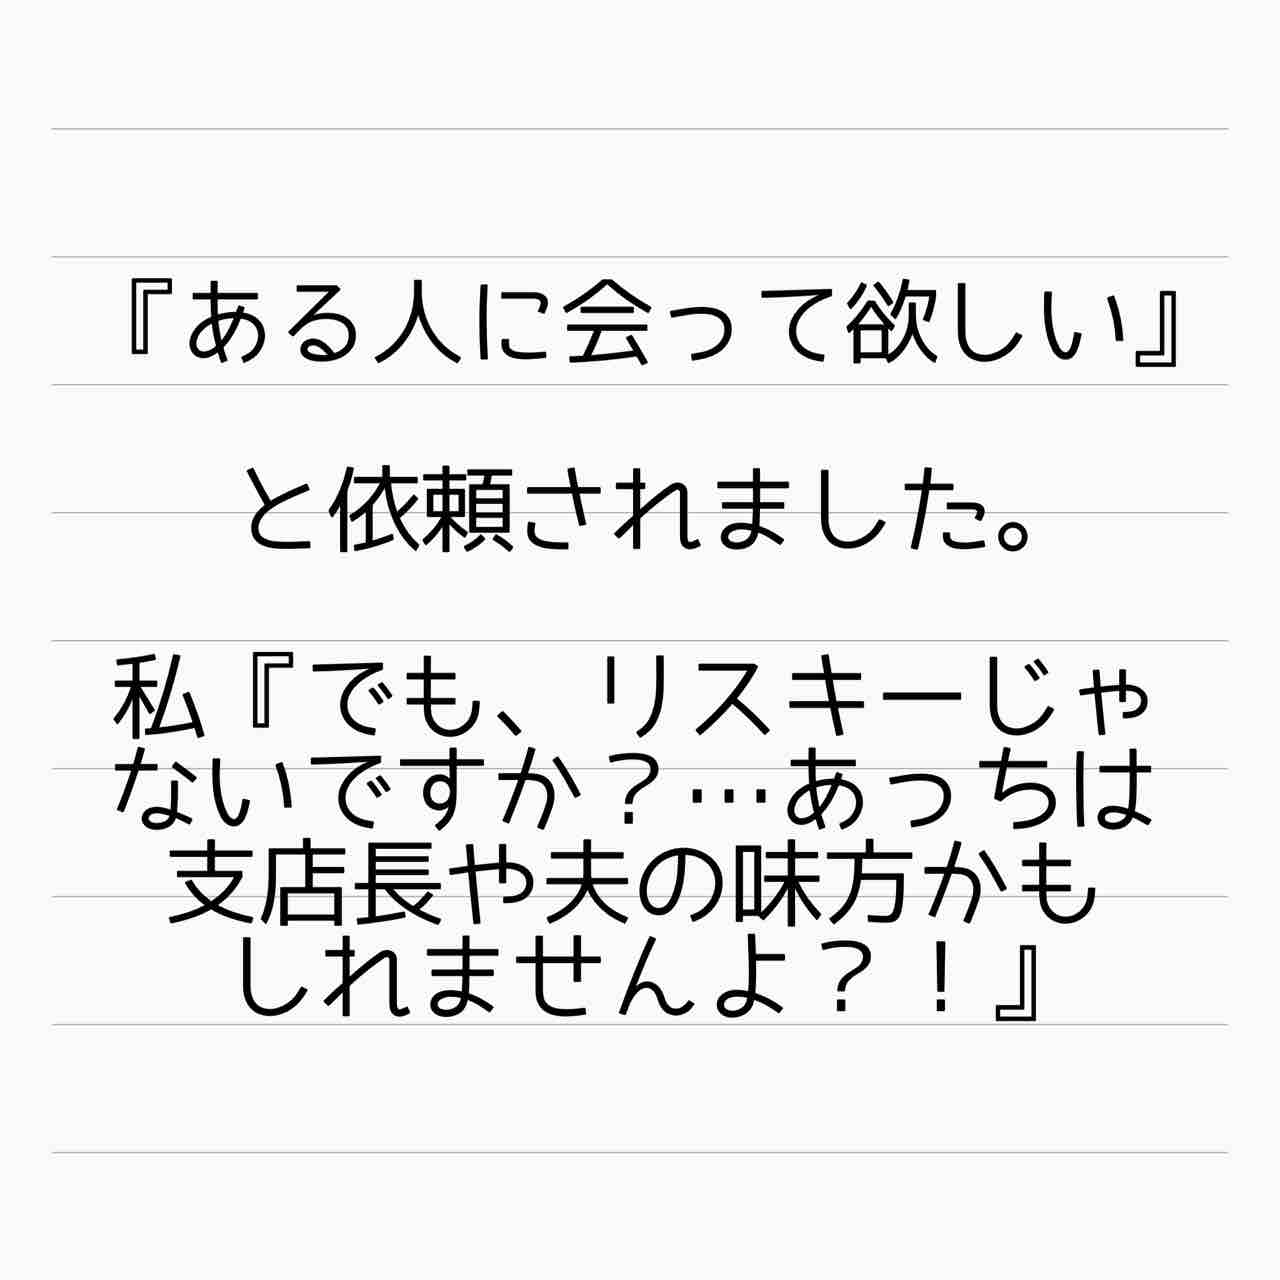 『ある人に会って欲しい』
と依頼されました。
私『でも、リスキーじゃ
ないですか？…あっちは
支店長や夫の味方かも
しれませんよ？！』